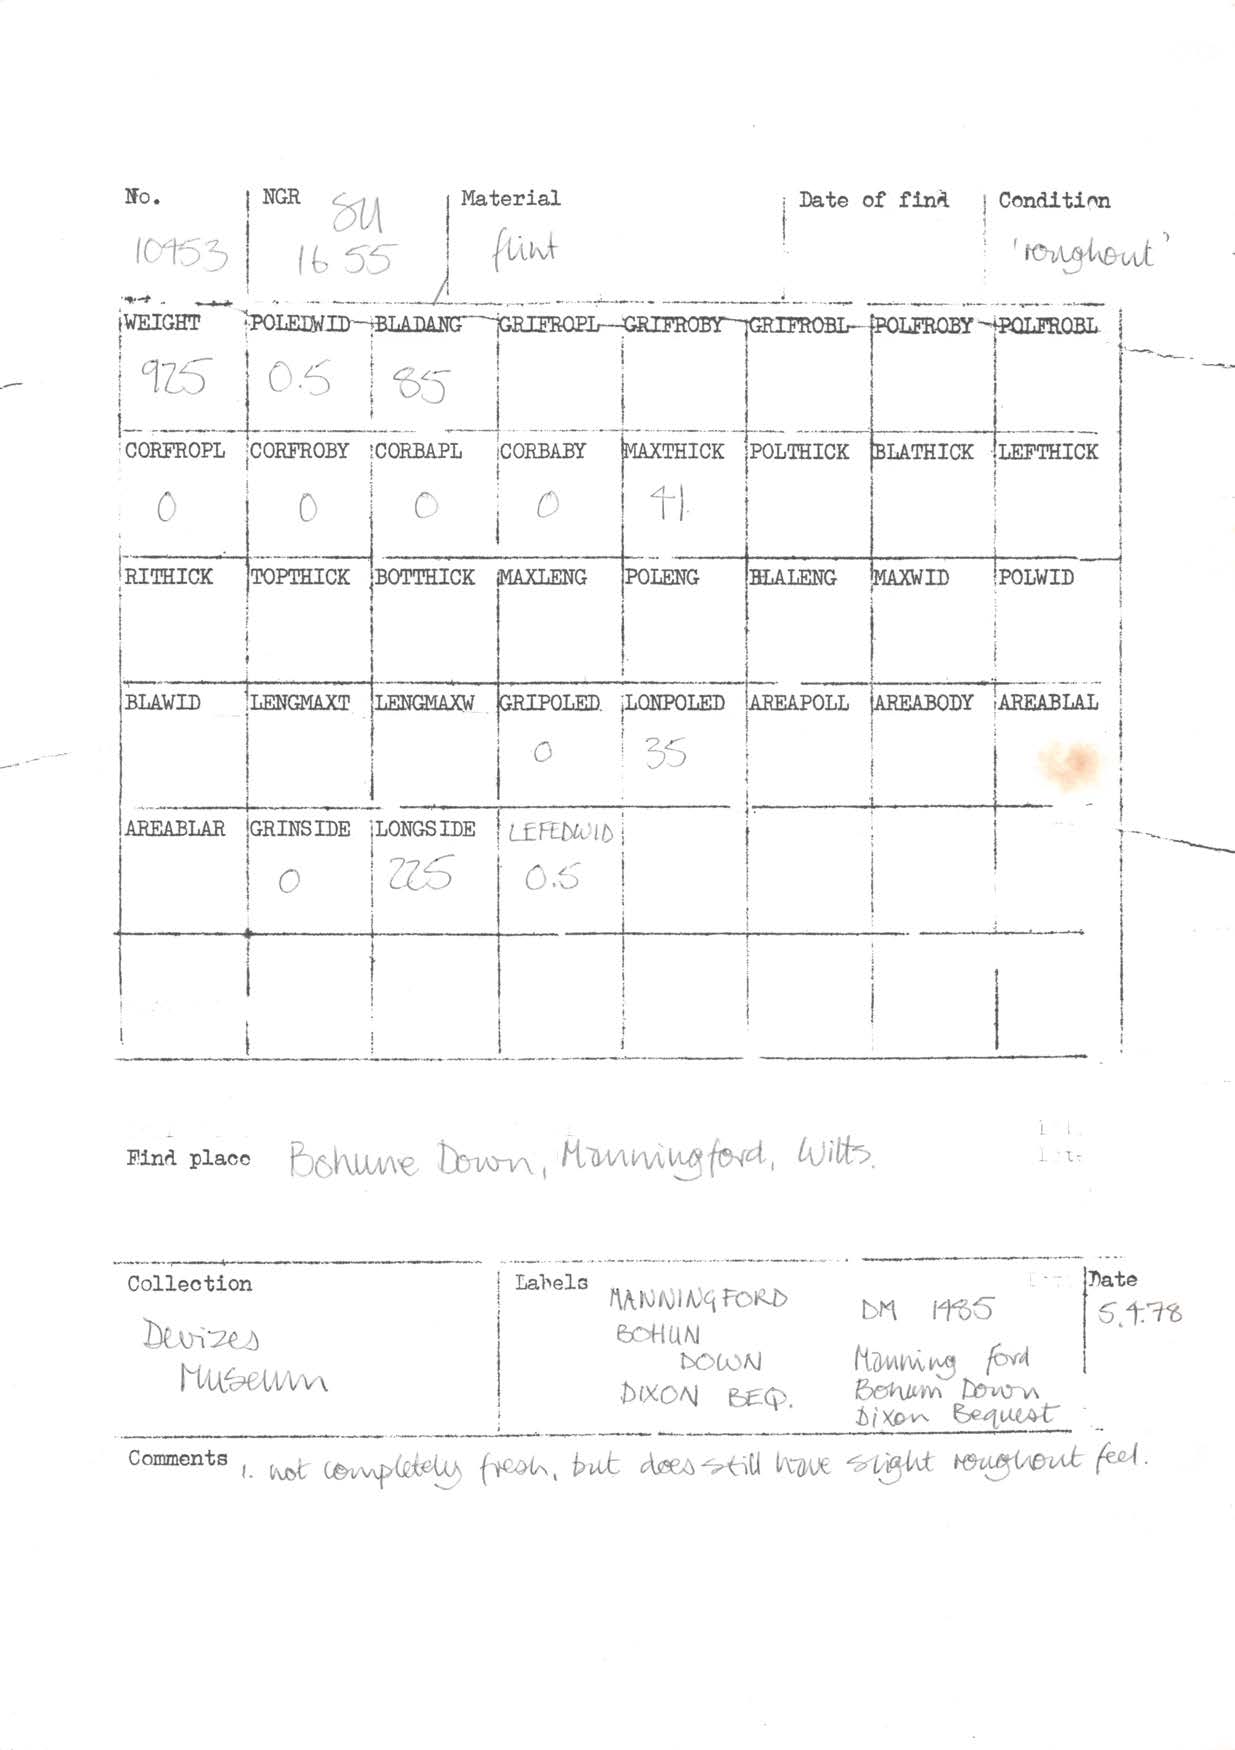 No. NGR SU Material Date of find Condition
10453 16 55 flint 'roughout'
WEIGHT POLEDWID BLADANG GRIFROPL GRIFROBY GRIFROBL POLFROBY POLFROBL
925 0.5 85
CORFROPL CORFROBY CORBAPL CORBABY MAXTHICK POLTHICK BLATHICK LEFTHICK
0 0 0 0 41
RITHICK TOPTHICK BOTTHICK MAXLENG POLENG BLALENG MAXWID POLWID
BLAWID LENGMAXT LENGMAXW GRIPOLED LONPOLED AREAPOLL AREABODY AREABLAL
0 35
AREABLAR GRINSIDE LONGSIDE LEFEDWID
0 225 0.5
Find place Bohune Down, Manningford, Wilts.
Collection
Devizes
Museum
Labels MANNINGFORD
BOHUN
DOWN
DIXON BEQ.
DM 1485
Manning ford
Bohum Down
Dixon Bequest
Date
5.4.78
Comments 1. not completely fresh, but does still have slight roughout feel.